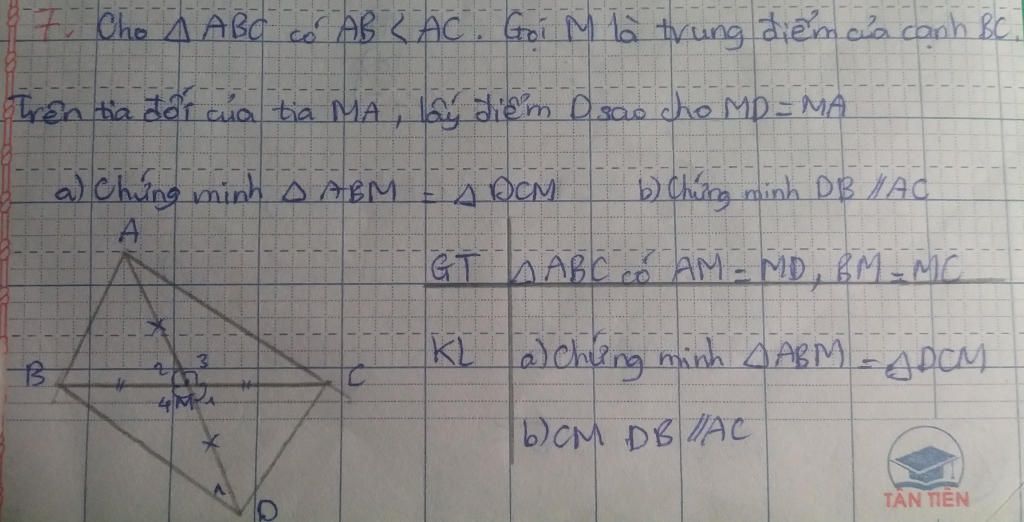 7. Cho △ ABC có AB < AC. Gọi M là trung điểm của cạnh BC.
Trên tia đối của tia MA, lấy điểm D sao cho MD = MA
a) Chứng minh △ ABM = △ DCM b) Chứng minh DB // AC
A
GT △ ABC có AM = MD, BM = MC
KL a) Chứng minh △ ABM = △ DCM
2 3
B C
4 M 1
b) CM DB // AC
1
D
TÂN TIẾN